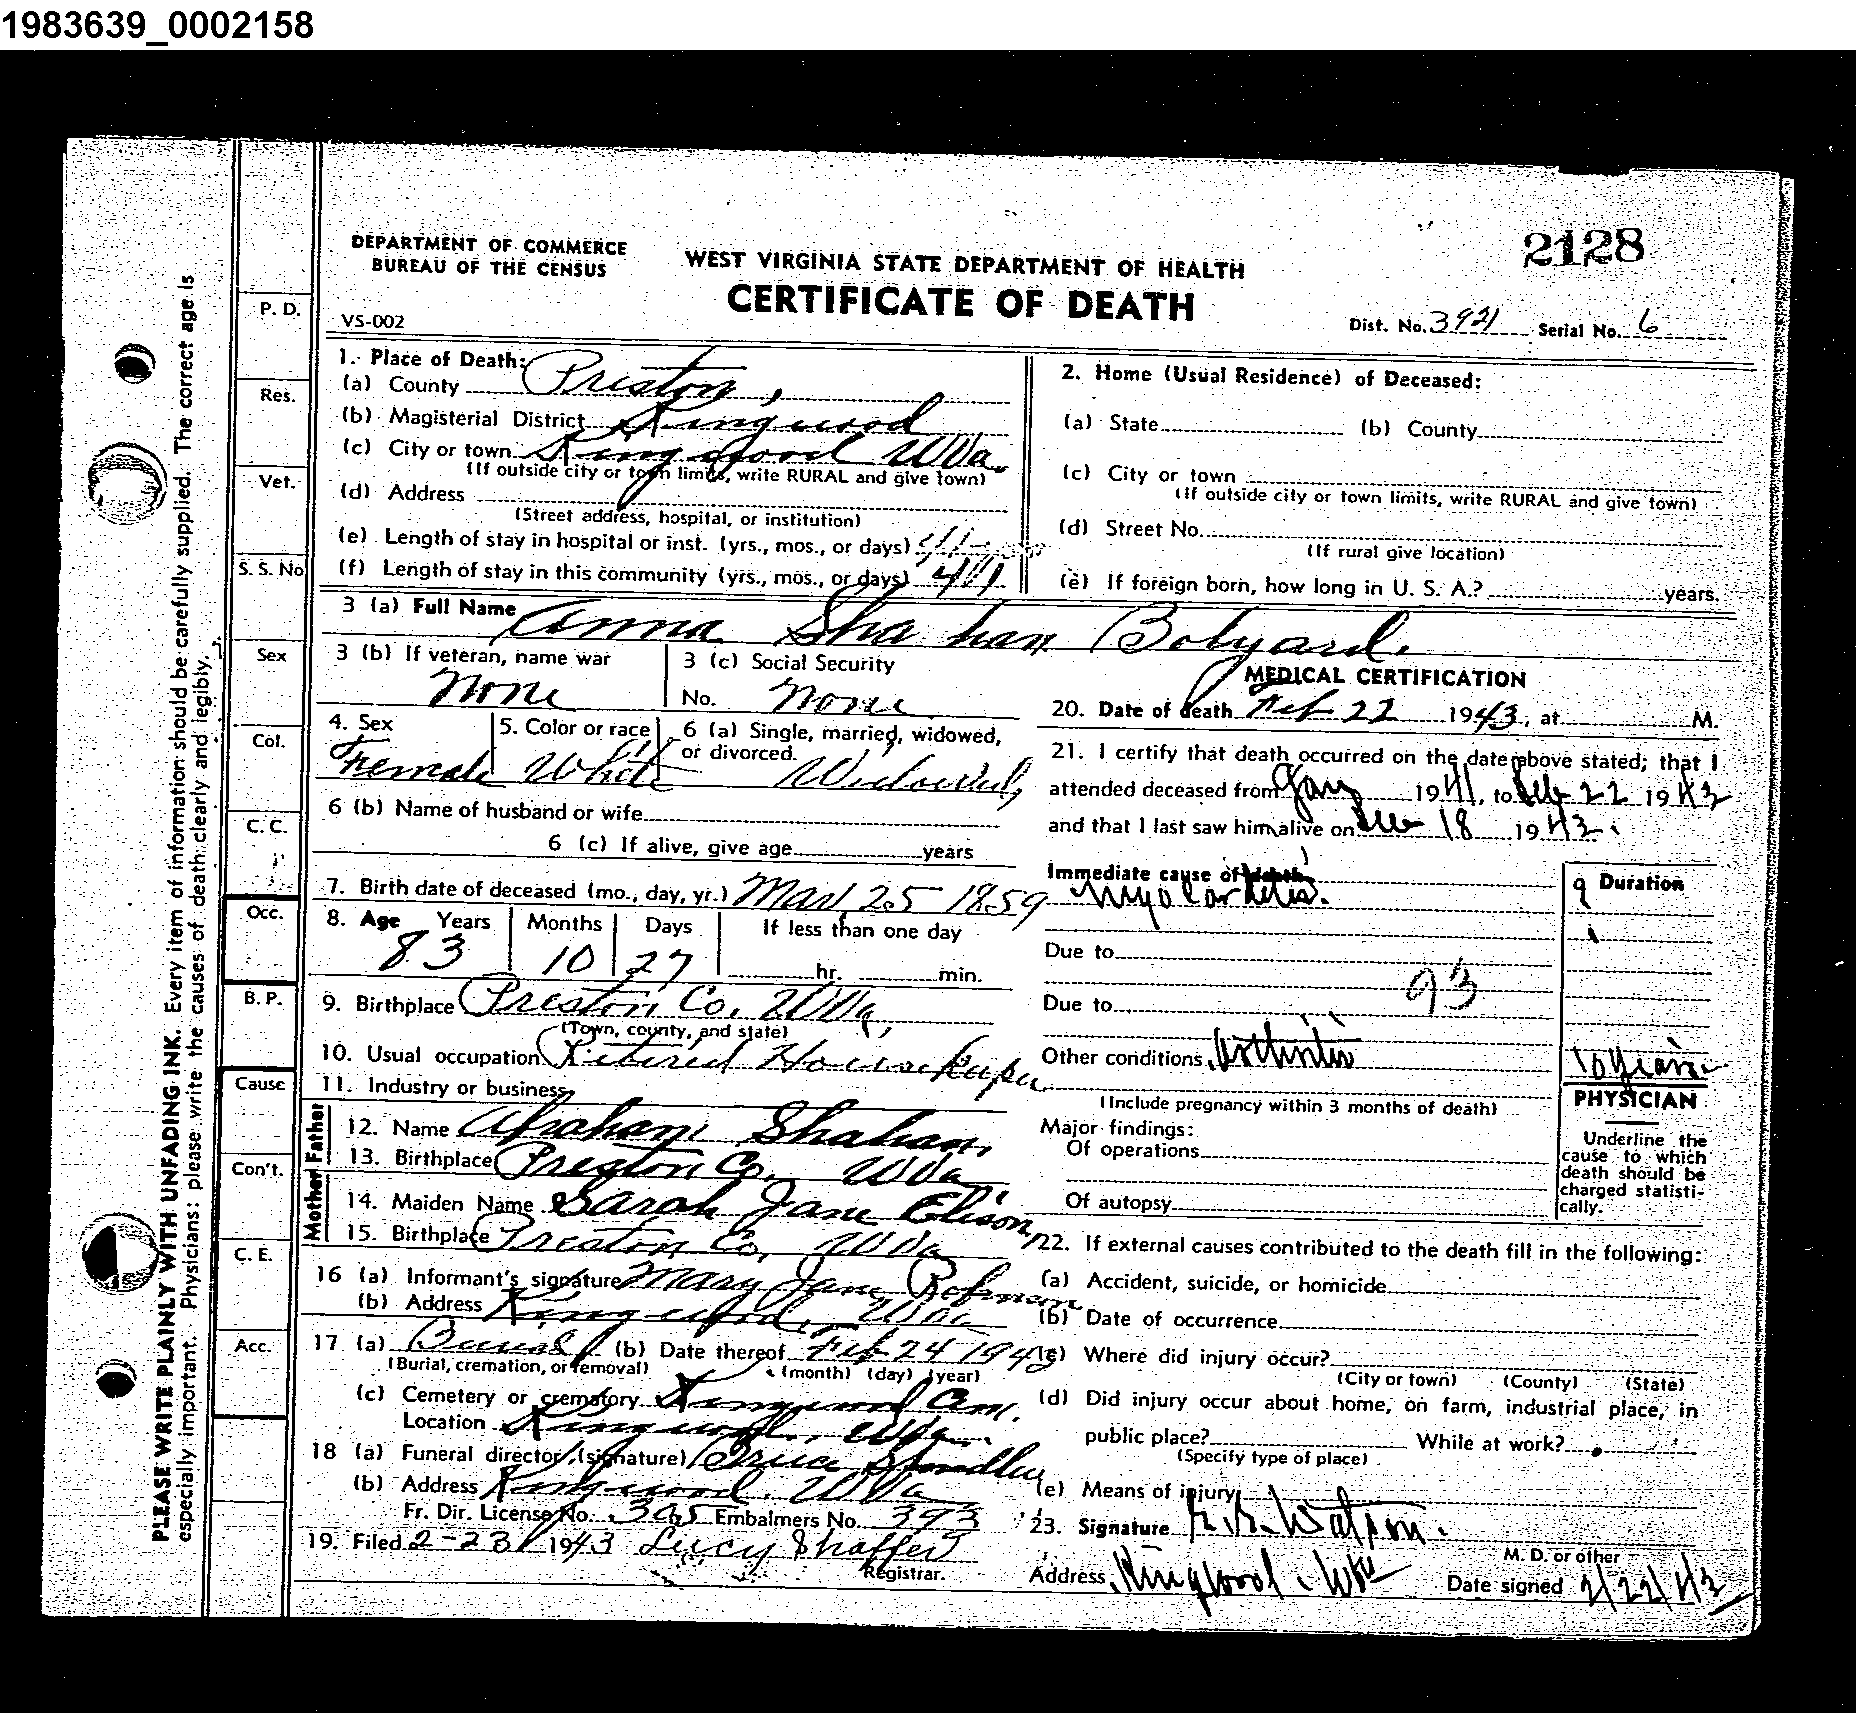 1983639_0002158
2128
DEPARTMENT OF COMMERCE
BUREAU OF THE CENSUS
WEST VIRGINIA STATE DEPARTMENT OF HEALTH
CERTIFICATE OF DEATH
VS-002
Dist. No. 3921 Serial No. 6
PLEASE WRITE PLAINLY WITH UNFADING INK. Every item of information should be carefully supplied. The correct age is
especially important. Physicians: please write the causes of death clearly and legibly.
P. D.
Res.
Vet.
S. S. No
Sex
Col.
C. C.
Occ.
B. P.
Cause
Con't.
C. E.
Acc.
1. Place of Death:
(a) County Preston,
(b) Magisterial District Kingwood
(c) City or town Kingwood WVa.
(If outside city or town limits, write RURAL and give town)
(d) Address
(Street address, hospital, or institution)
(e) Length of stay in hospital or inst. (yrs., mos., or days)
(f) Length of stay in this community (yrs., mos., or days)
2. Home (Usual Residence) of Deceased:
(a) State (b) County
(c) City or town
(If outside city or town limits, write RURAL and give town)
(d) Street No.
(If rural give location)
(e) If foreign born, how long in U. S. A.? years.
3 (a) Full Name Anna Shahan Bolyard.
3 (b) If veteran, name war
None
3 (c) Social Security
No. None
4. Sex
Female
5. Color or race
White
6 (a) Single, married, widowed,
or divorced.
Widowed,
6 (b) Name of husband or wife
6 (c) If alive, give age years
7. Birth date of deceased (mo., day, yr.) Mar 25 1859
8. Age Years Months Days If less than one day
83 10 27 hr. min.
9. Birthplace Preston Co. WVa,
(Town, county, and state)
10. Usual occupation Retired Housekeeper
11. Industry or business
Father
12. Name Abraham Shahan,
13. Birthplace Preston Co. WVa
Mother
14. Maiden Name Sarah Jane Elison,
15. Birthplace Preston Co, WVa
16 (a) Informant's signature Mary Jane Robinson
(b) Address Kingwood, WVa
17 (a) Burial (b) Date thereof Feb 24 1943
(Burial, cremation, or removal) (month) (day) (year)
(c) Cemetery or crematory Kingwood Cem.
Location Kingwood, WVa.
18 (a) Funeral director (signature) Bruce Spindler
(b) Address Kingwood, WVa
Fr. Dir. License No. 305 Embalmers No. 393
19. Filed 2-23 1943 Lucy Shaffer
Registrar.
MEDICAL CERTIFICATION
20. Date of death Feb 22 1943, at M.
21. I certify that death occurred on the date above stated; that I
attended deceased from Jany 1941, to Feb 22 1943
and that I last saw him alive on Feb 18 1943.
Immediate cause of death
Myocarditis.
Duration
Due to
93
Due to
Other conditions Arthritis 10 years
(Include pregnancy within 3 months of death)
Major findings:
Of operations
Of autopsy
PHYSICIAN
Underline the
cause to which
death should be
charged statisti-
cally.
22. If external causes contributed to the death fill in the following:
(a) Accident, suicide, or homicide
(b) Date of occurrence
(c) Where did injury occur?
(City or town) (County) (State)
(d) Did injury occur about home, on farm, industrial place, in
public place? While at work?
(Specify type of place)
(e) Means of injury
23. Signature Watson.
M. D. or other
Address Kingwood, WVa Date signed 2/22/43